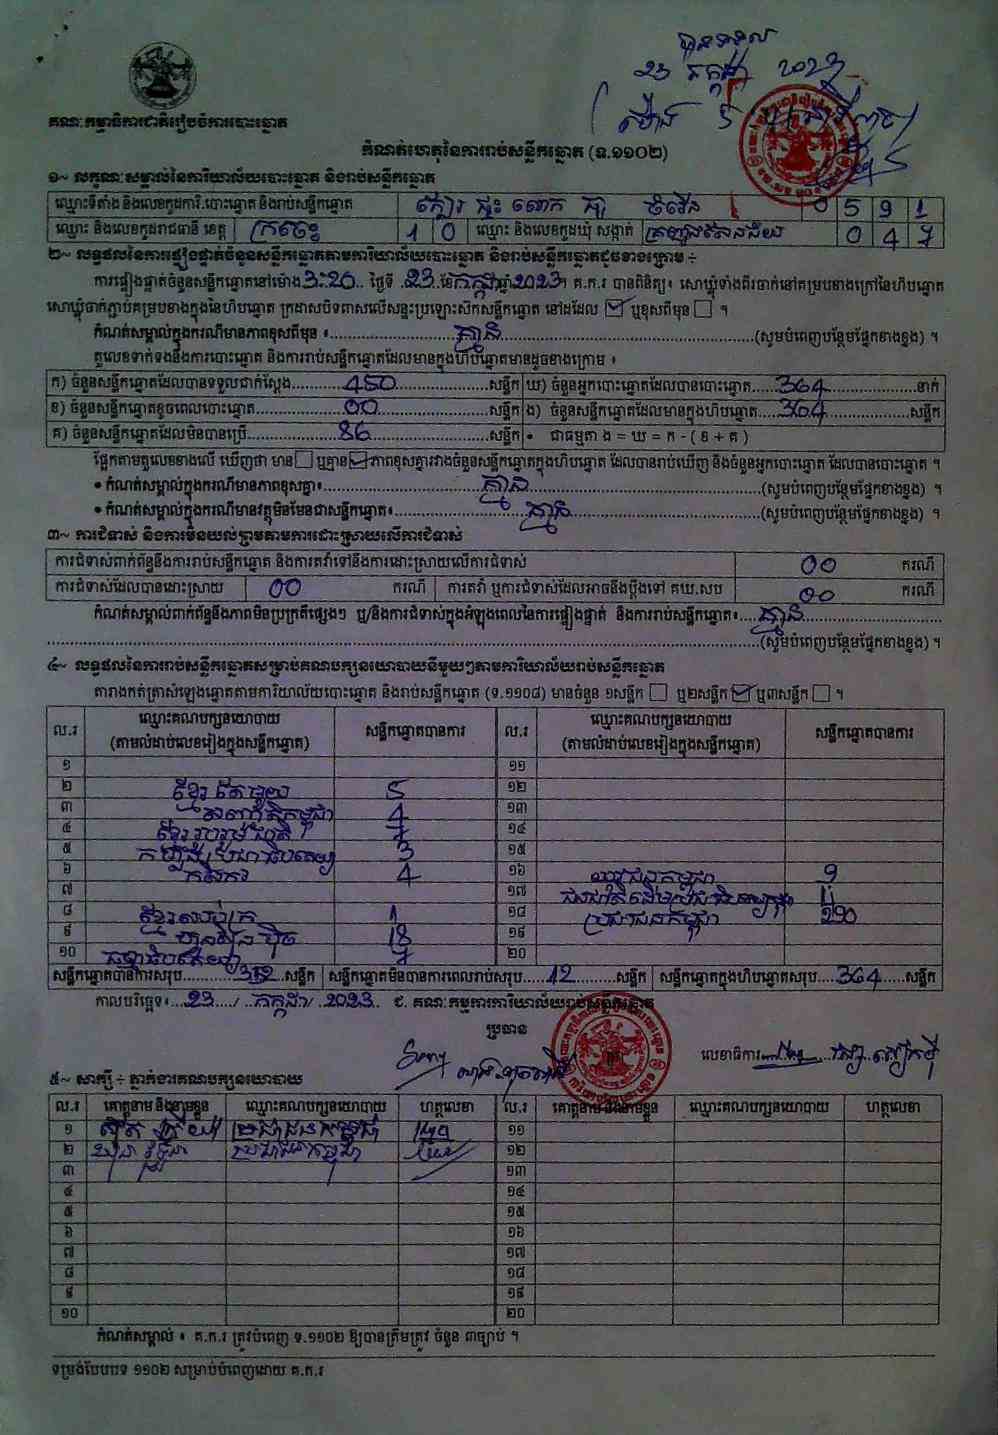 បានទទួល
23 កក្កដា 2023
ម៉ោង 5
គណៈកម្មាធិការជាតិរៀបចំការបោះឆ្នោត
កំណត់ហេតុនៃការរាប់សន្លឹកឆ្នោត (ទ.១១០២)
១~ លក្ខណៈសម្គាល់នៃការិយាល័យបោះឆ្នោត និងរាប់សន្លឹកឆ្នោត
ឈ្មោះទីតាំង និងលេខកូដការិ.បោះឆ្នោត និងរាប់សន្លឹកឆ្នោត ផ្ទះ លោក 0 5 9 1
ឈ្មោះ និងលេខកូដរាជធានី ខេត្ត ក្រចេះ 1 0 ឈ្មោះ និងលេខកូដឃុំ សង្កាត់ 0 4 7
២~ លទ្ធផលនៃការផ្ទៀងផ្ទាត់ចំនួនសន្លឹកឆ្នោតតាមការិយាល័យបោះឆ្នោត និងរាប់សន្លឹកឆ្នោតដូចខាងក្រោម ÷
ការផ្ទៀងផ្ទាត់ចំនួនសន្លឹកឆ្នោតនៅម៉ោង 3:20 ថ្ងៃទី 23 ខែ កក្កដា ឆ្នាំ 2023 ។ គ.ក.រ បានពិនិត្យ៖ សោឃ្មុំទាំងពីរចាក់នៅគម្របខាងក្រៅនៃហិបឆ្នោត
សោឃ្មុំចាក់ភ្ជាប់គម្របខាងក្នុងនៃហិបឆ្នោត ក្រដាសបិទពាសលើសន្ទះប្រឡោះសឹកសន្លឹកឆ្នោត នៅដដែល ☑ ឬខុសពីមុន ☐ ។
កំណត់សម្គាល់ក្នុងករណីមានភាពខុសពីមុន ៖ គ្មាន (សូមបំពេញបន្ថែមផ្នែកខាងខ្នង) ។
តួលេខទាក់ទងនឹងការបោះឆ្នោត និងការរាប់សន្លឹកឆ្នោតដែលមានក្នុងហិបឆ្នោតមានដូចខាងក្រោម ៖
ក) ចំនួនសន្លឹកឆ្នោតដែលបានទទួលជាក់ស្តែង 450 សន្លឹក ឃ) ចំនួនអ្នកបោះឆ្នោតដែលបានបោះឆ្នោត 364 នាក់
ខ) ចំនួនសន្លឹកឆ្នោតខូចពេលបោះឆ្នោត 00 សន្លឹក ង) ចំនួនសន្លឹកឆ្នោតដែលមានក្នុងហិបឆ្នោត 364 សន្លឹក
គ) ចំនួនសន្លឹកឆ្នោតដែលមិនបានប្រើ 86 សន្លឹក • ជាធម្មតា ង = ឃ = ក - ( ខ + គ )
ផ្អែកតាមតួលេខខាងលើ ឃើញថា មាន ☐ ឬគ្មាន ☑ ភាពខុសគ្នារវាងចំនួនសន្លឹកឆ្នោតក្នុងហិបឆ្នោត ដែលបានរាប់ឃើញ និងចំនួនអ្នកបោះឆ្នោត ដែលបានបោះឆ្នោត ។
• កំណត់សម្គាល់ក្នុងករណីមានភាពខុសគ្នា៖ គ្មាន (សូមបំពេញបន្ថែមផ្នែកខាងខ្នង) ។
• កំណត់សម្គាល់ក្នុងករណីមានវត្ថុមិនមែនជាសន្លឹកឆ្នោត៖ គ្មាន (សូមបំពេញបន្ថែមផ្នែកខាងខ្នង) ។
៣~ ការជំទាស់ និងការមិនយល់ព្រមតាមការដោះស្រាយលើការជំទាស់
ការជំទាស់ពាក់ព័ន្ធនឹងការរាប់សន្លឹកឆ្នោត និងការតវ៉ាទៅនឹងការដោះស្រាយលើការជំទាស់ 00 ករណី
ការជំទាស់ដែលបានដោះស្រាយ 00 ករណី ការតវ៉ា ឬការជំទាស់ដែលអាចនឹងប្តឹងទៅ គឃ.សប 00 ករណី
កំណត់សម្គាល់ពាក់ព័ន្ធនឹងភាពមិនប្រក្រតីផ្សេងៗ ឬ/និងការជំទាស់ក្នុងអំឡុងពេលនៃការផ្ទៀងផ្ទាត់ និងការរាប់សន្លឹកឆ្នោត៖ គ្មាន
(សូមបំពេញបន្ថែមផ្នែកខាងខ្នង) ។
៤~ លទ្ធផលនៃការរាប់សន្លឹកឆ្នោតសម្រាប់គណបក្សនយោបាយនីមួយៗតាមការិយាល័យរាប់សន្លឹកឆ្នោត
តារាងកត់ត្រាសំឡេងឆ្នោតតាមការិយាល័យបោះឆ្នោត និងរាប់សន្លឹកឆ្នោត (ទ.១១០៨) មានចំនួន ១សន្លឹក ☐ ឬ២សន្លឹក ☑ ឬ៣សន្លឹក ☐ ។
ល.រ ឈ្មោះគណបក្សនយោបាយ (តាមលំដាប់លេខរៀងក្នុងសន្លឹកឆ្នោត) សន្លឹកឆ្នោតបានការ ល.រ ឈ្មោះគណបក្សនយោបាយ (តាមលំដាប់លេខរៀងក្នុងសន្លឹកឆ្នោត) សន្លឹកឆ្នោតបានការ
១ ១១
២ ខ្មែរតែមួយ 5 ១២
៣ 4 ១៣
៤ ខ្មែររួបរួមជាតិ 7 ១៤
៥ កម្លាំងប្រជាធិបតេយ្យ 3 ១៥
៦ កសិករ 4 ១៦ យុវជនកម្ពុជា 9
៧ ១៧ ជនជាតិដើមប្រជាធិបតេយ្យកម្ពុជា
៨ 1 ១៨ ប្រជាជនកម្ពុជា
៩ ហ្វ៊ុនស៊ិនប៉ិច ១៩
១០ ធម្មាធិបតេយ្យ ២០
សន្លឹកឆ្នោតបានការសរុប 352 សន្លឹក សន្លឹកឆ្នោតមិនបានការពេលរាប់សរុប 12 សន្លឹក សន្លឹកឆ្នោតក្នុងហិបឆ្នោតសរុប 364 សន្លឹក
កាលបរិច្ឆេទ៖ 23 / កក្កដា / 2023 ជ. គណៈកម្មការការិយាល័យរាប់សន្លឹកឆ្នោត
ប្រធាន
លេខាធិការ
៥~ សាក្សី ÷ ភ្នាក់ងារគណបក្សនយោបាយ
ល.រ គោត្តនាម និងនាមខ្លួន ឈ្មោះគណបក្សនយោបាយ ហត្ថលេខា ល.រ គោត្តនាម និងនាមខ្លួន ឈ្មោះគណបក្សនយោបាយ ហត្ថលេខា
១ ប្រជាជនកម្ពុជា ១១
២ ប្រជាជនកម្ពុជា ១២
៣ ១៣
៤ ១៤
៥ ១៥
៦ ១៦
៧ ១៧
៨ ១៨
៩ ១៩
១០ ២០
កំណត់សម្គាល់ ៖ គ.ក.រ ត្រូវបំពេញ ទ.១១០២ ឱ្យបានត្រឹមត្រូវ ចំនួន ៣ច្បាប់ ។
ទម្រង់បែបបទ ១១០២ សម្រាប់បំពេញដោយ គ.ក.រ